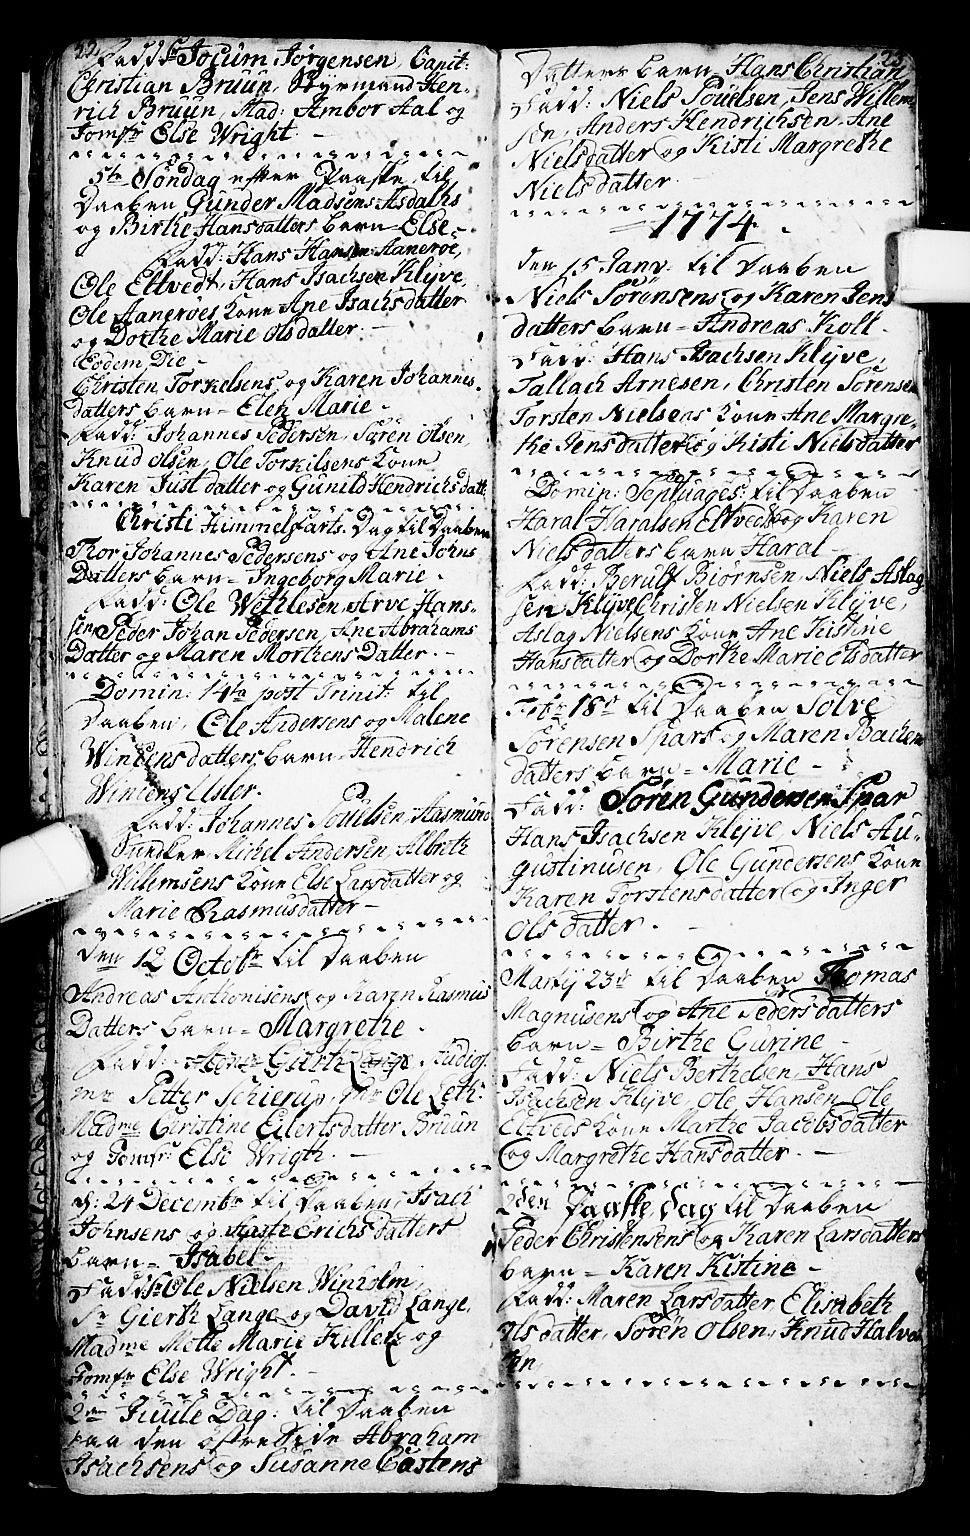 22.
Fadd: Sr Jocum Jørgensen, Capit:
Christian Bruun, Styrmand Hen-
rich Bruun, Mad: Ambor Aal og
Jomfr Else Wright. -
5te Søndag efter Paaske til
Daaben Gunder Madsens Aasdalhs
og Birthe Hansdatters barn = Else.
Fadd: Hans Hansen Aaneröe,
Ole Eltvedt, Hans Isachsen Klÿve,
Ole Aaneröes Kone Ane Isachsdatter
og Dorthe Marie Olsdatter. -
Eodem Die -
Christen Torkelsens og Karen Johannes-
datters barn = Elen Marie -
Fadd: Johannes Pedersen, Søren Olsen,
Knud Olsen, Ole Torkilsens Kone
Karen Just datter og Gunild Hendrichsdatt:
Christi Himmelfarts-Dag til Daaben
Thor Johannes Pedersens og Ane Johns
Datters barn = Ingeborg Marie -
Fadd: Ole Wethlesen, Arve Hans-
sen, Peder Johan Pedersen, Ane Abrahams
Datter og Maren Morthens Datter. -
Domin: 14ta post Trinit: til
Daaben, Ole Andersens og Malene
Wincensdatters barn = Hendrich
Wincens Usler.
Fadd: Johannes Poulsen, Rasmus
Michel Andersen, Albrith
Willemsens Kone Else Larsdatter og
Marie Rasmusdatter -
den 12 Octobr til Daaben
Andreas Anthonisens og Karen Rasmus
Datters barn = Margrethe -
Fadd: Gierth Lange, Studios.
mr Petter Schierup, mr Ole Leth:
Madme Christine Eilertsdatter Bruun
og Jomfr: Else Wrigth. -
d: 24 Decembr til Daaben, Isach
Johnsens og Erichsdatters
barn = Isabel -
Fadd: Sr Ole Nielsen Winholm,
Sr Gierth Lange og David Lange,
Madme Mette Marie Hillets og
Jomfr Else Wright. -
2den Juule Dag: til Daaben
paa den østre Side Abraham
Isachsens og Susanne Castens
23.
Datters barn Hans Christian
Fadd: Niels Poulsen, Jens Willem-
sen, Anders Hendrichsen, Ane
Nielsdatter og Kisti Margrethe
Nielsdatter.
1774.
den 15 Janv: til Daaben
Niels Sørensens og Karen Jens
datters barn = Andreas Kolt -
Fadd: Hans Isachsen Klÿve,
Tallach Arnesen, Christen Sørensen
Torsten Nielsens Kone Ane Margre-
the Jensdatter og Kisti Nielsdatter
Domin: Septuages: til Daaben
Haral Haralsen Eltvedt og Karen
Nielsdatters barn Haral -
Fadd: Berulf Biørnsen, Niels Aslag
sen Klÿve, Christen Nielsen Klÿve,
Aslag Nielsens Kone Ane Kistine
Hansdatter og Dorthe Marie Olsdatter
Febr 18d til Daaben Solve
Sørensen Spars og Maren Bachen
datters barn = Marie -
Fadd: Søren Gundersen Spar
Hans Isachsen Klÿve, Niels Au-
gustinusen, Ole Gundersens Kone
Karen Torstensdatter og Inger
Olsdatter. -
Martij 23d til Daaben Thomas
Magnusens og Ane Pedersdatters
barn = Birthe Gurine -
Fadd: Niels Berthelsen, Hans
Isachsen Klÿve, Ole Hansen, Ole
Eltveds Kone Marthe Jacobsdatter
og Margrethe Hansdatter. -
2den Paaske Dag til Daaben
Peder Christensens og Karen Larsdatters
barn = Karen Kistine -
Fadd: Maren Larsdatter, Elisabeth
Olsdatter, Søren Olsen, Knud Halvor
sen